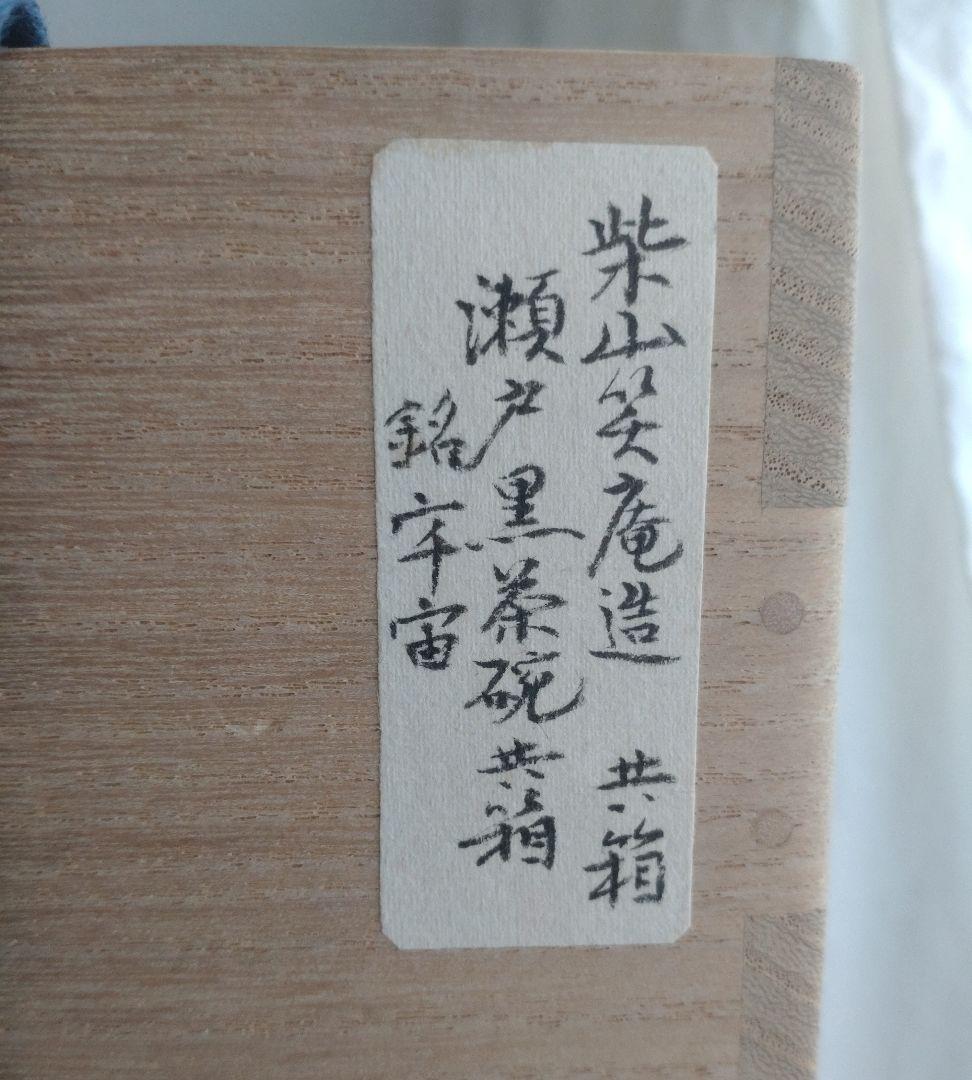 柴山笑庵造 共箱
瀬戸黒茶碗共箱
銘宇宙